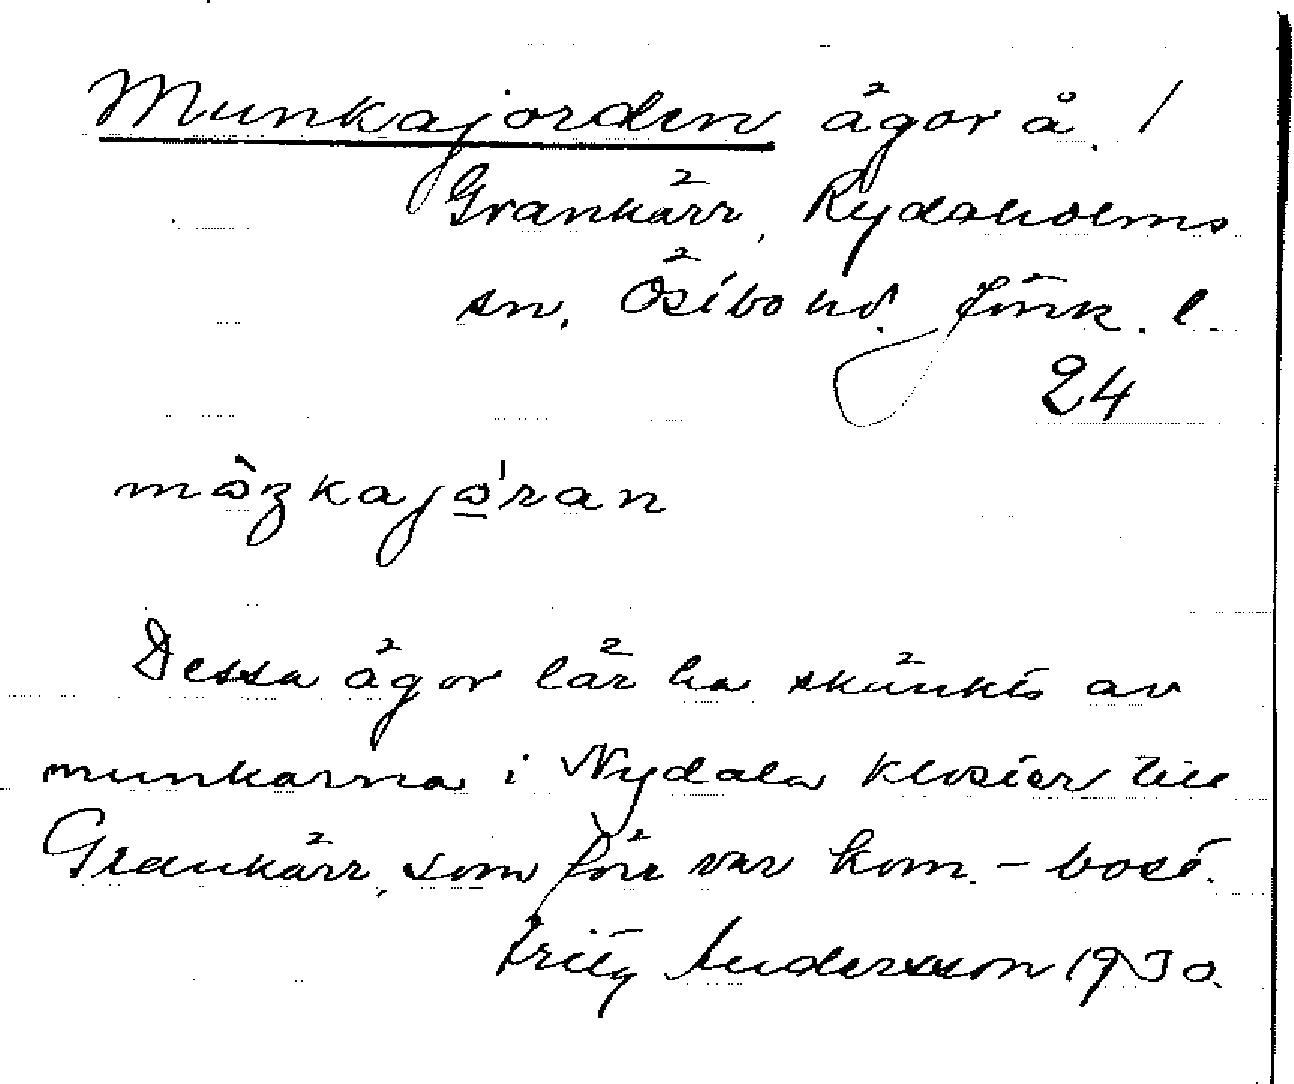 Munkajorden ägor å /
Grankärr, Rydaholms
sn. Östbo hd. Jönk. l.
24
Dessa ägor lär ha skänkts av
munkarna i Nydala kloster till
Grankärr, som förr var kom.-bost.
Fritz Andersson 1930.